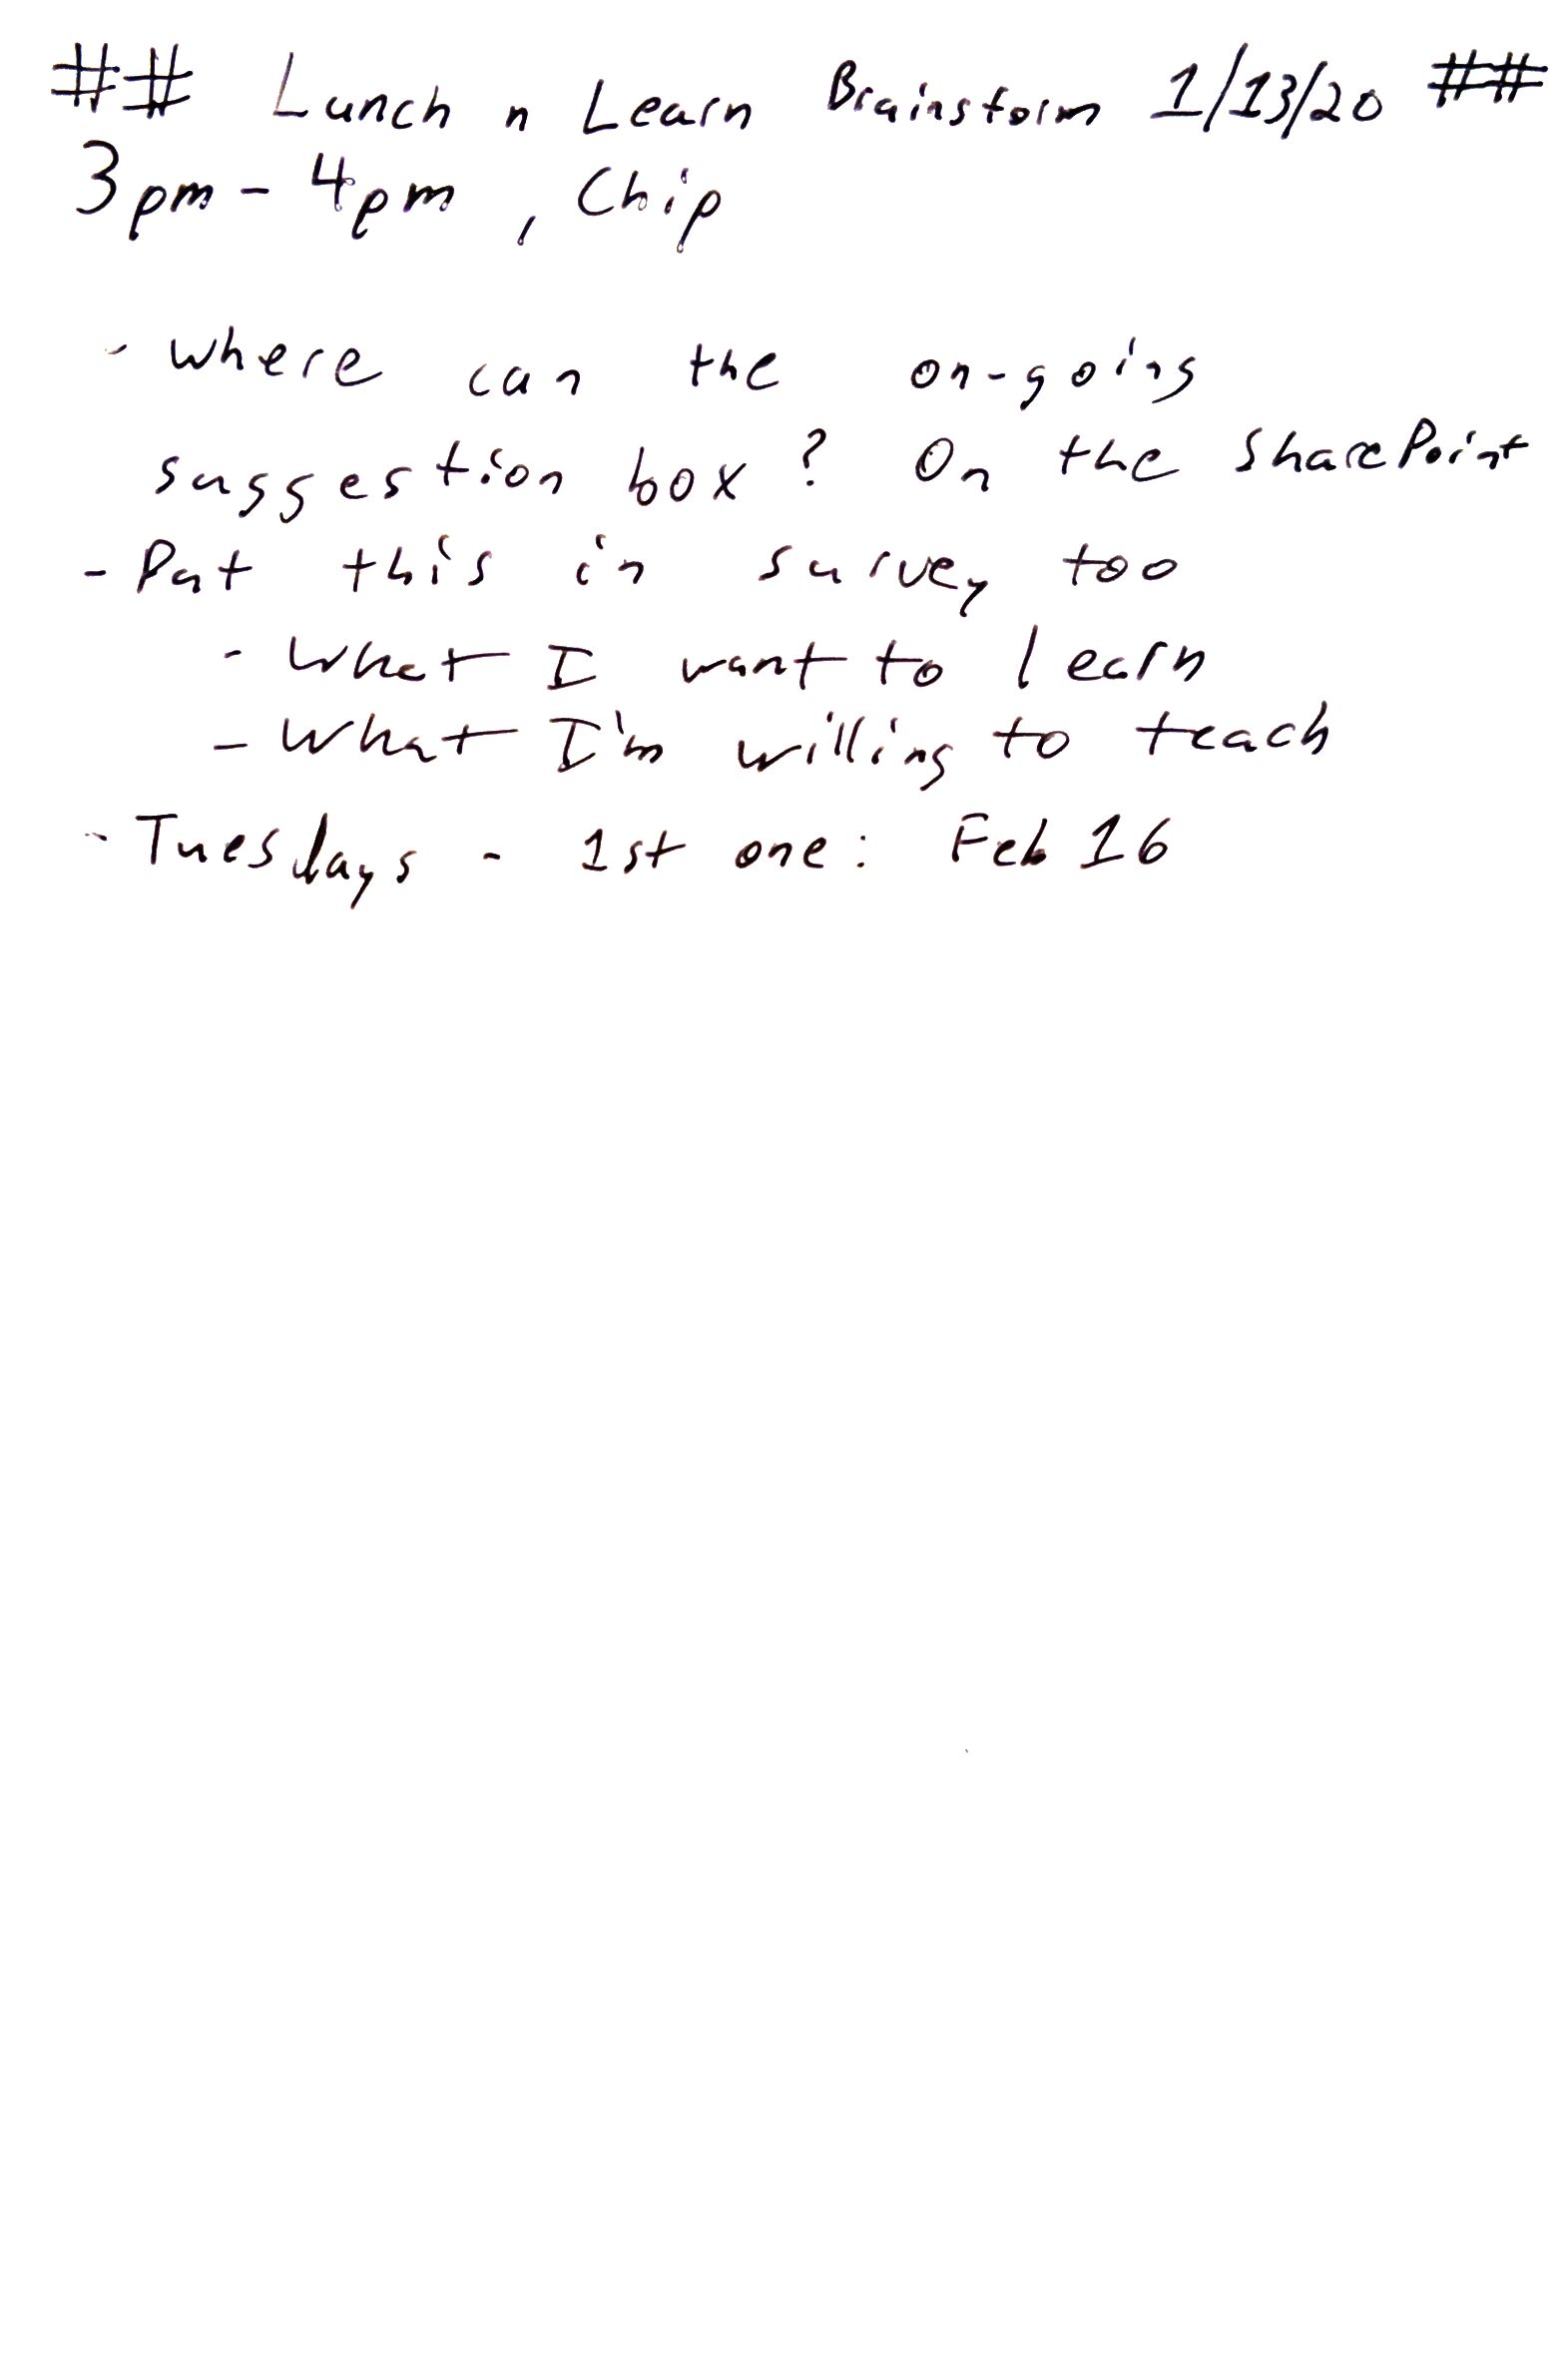 ## Lunch n Learn Brainstorm 1/13/20 ##
3pm - 4pm, Chip
- where can the on-going
suggestion box? On the SharePoint
- Put this in survey too
- What I want to learn
- What I'm willing to teach
- Tuesdays - 1st one: Feb 16